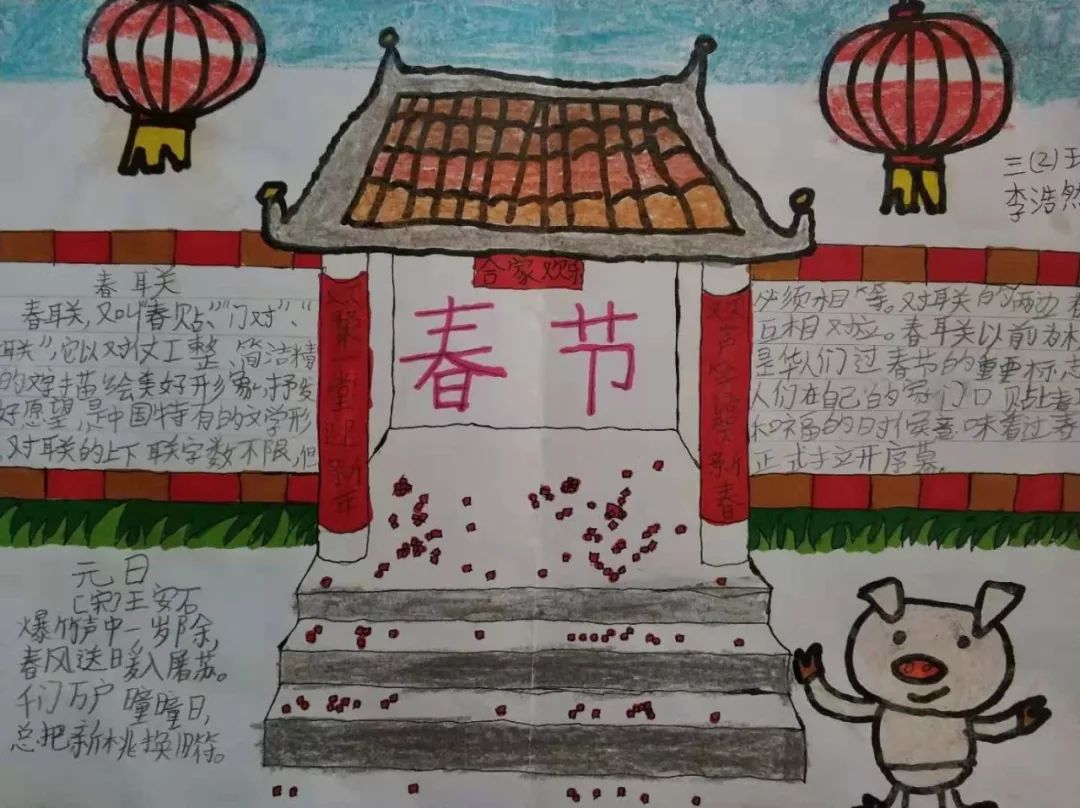 三(2)
李浩然
合家欢乐
春节
欢聚一堂迎新年
欢声笑语贺新春
春联
春联,又叫"春贴""门对"、"
联",它以对仗工整、简洁精
的文字描绘美好形象,抒发
好愿望,是中国特有的文学形
对联的上下联字数不限,但
必须相等。对联的两边
互相对应。春联以前为木
是华人们过春节的重要标志
人们在自己的家门口贴上春
和福的时候意味着过春
正式拉开序幕。
元日
[宋]王安石
爆竹声中一岁除,
春风送暖入屠苏。
千门万户曈曈日,
总把新桃换旧符。